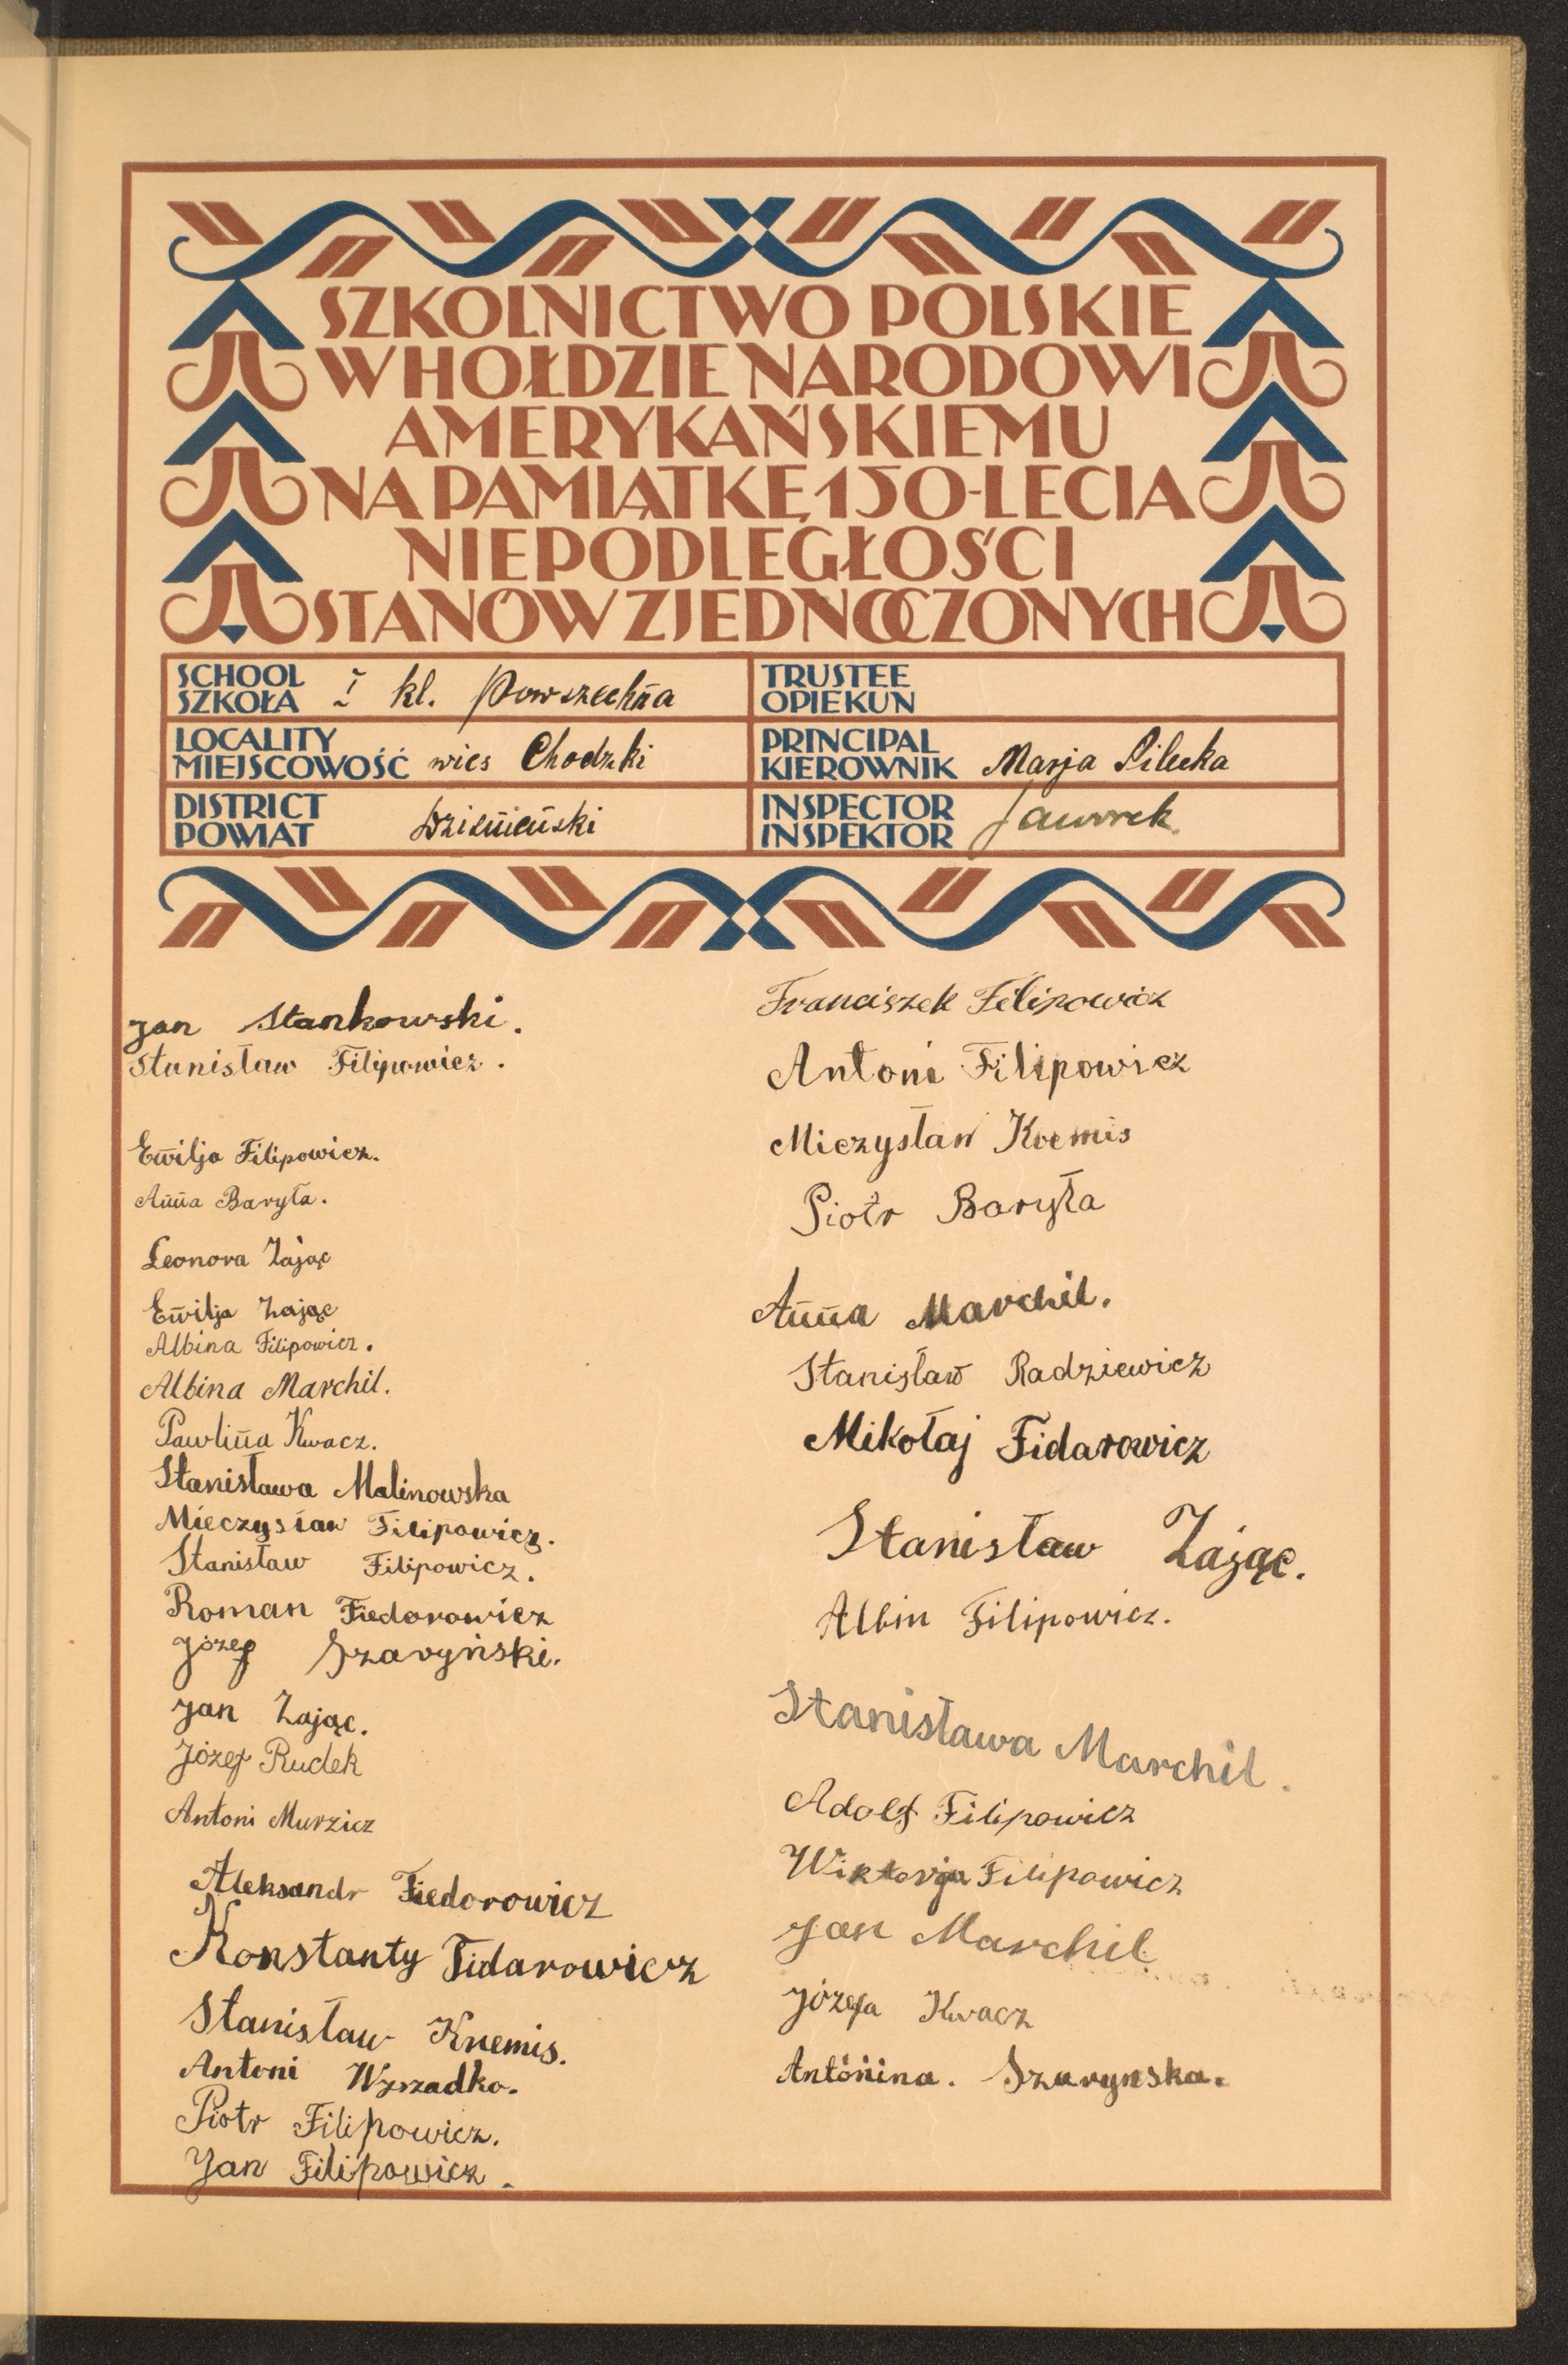 SZKOLNICTWO POLSKIE
W HOŁDZIE NARODOWI
AMERYKAŃSKIEMU
NA PAMIĄTKĘ 150-LECIA
NIEPODLEGŁOŚCI
STANÓW ZJEDNOCZONYCH
SCHOOL
SZKOŁA I kl. Powszechna
TRUSTEE
OPIEKUN
LOCALITY
MIEJSCOWOŚĆ wieś Chodzki
PRINCIPAL
KIEROWNIK Marja Pilecka
DISTRICT
POWIAT Dziśnieński
INSPECTOR
INSPEKTOR Jaworek
Jan Stankowski.
Stanisław Filipowicz.
Emilja Filipowicz.
Anna Baryła.
Leonora Zając
Emilja Zając
Albina Filipowicz.
Albina Marchil.
Pawlina Kwacz.
Stanisława Malinowska
Mieczysław Filipowicz.
Stanisław Filipowicz.
Roman Fiedorowicz
Józef Szaryński.
Jan Zając.
Józef Rudek
Antoni Murzicz
Aleksandr Fiedorowicz
Konstanty Fidarowicz
Stanisław Knemis.
Antoni
Piotr Filipowicz.
Jan Filipowicz.
Franciszek Filipowicz
Antoni Filipowicz
Mieczysław
Piotr Baryła
Anna Marchil.
Stanisław Radziewicz
Mikołaj Fidarowicz
Stanisław Zając.
Albin Filipowicz.
Stanisława Marchil.
Adolf Filipowicz
Wiktorja Filipowicz
Jan Marchil
Józefa Kwacz
Antonina. Szarynska.